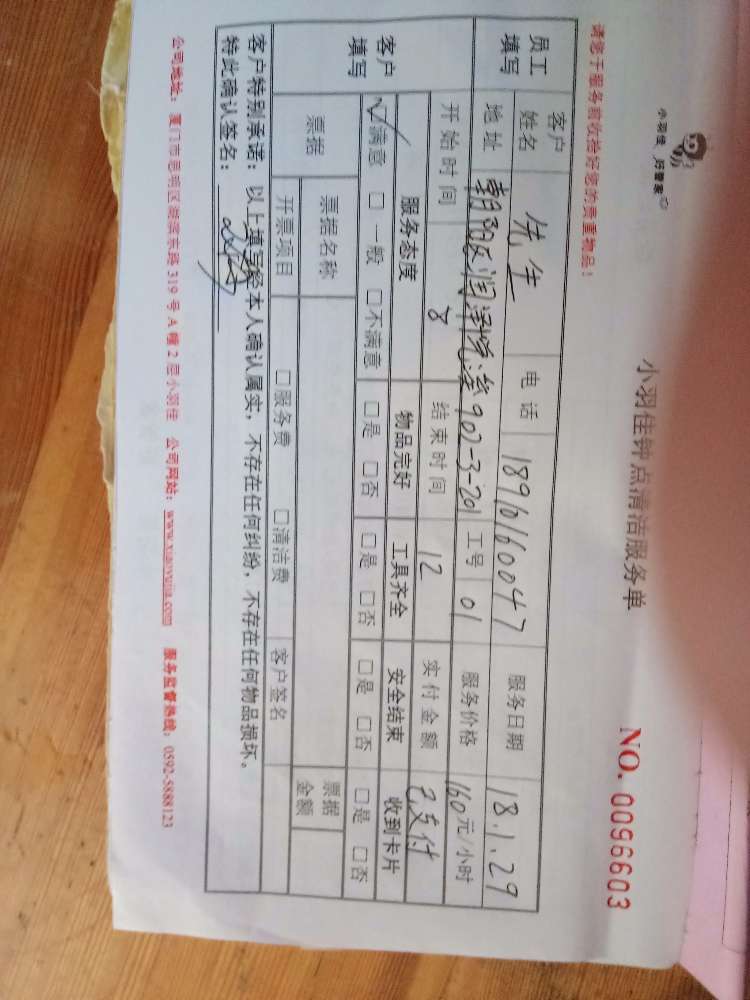 小羽佳 好管家
小羽佳钟点清洁服务单
请您于服务前收拾好您的贵重物品!
NO. 0096603
员工填写 客户姓名 先生 电话 18910160047 服务日期 18.1.29
地址 朝阳区润泽悦溪902-3-201 工号 01 服务价格 160元/小时
开始时间 8 结束时间 12 实付金额 已支付
客户填写 服务态度 物品完好 工具齐全 安全结束 收到卡片
☑满意 □一般 □不满意 □是 □否 □是 □否 □是 □否 □是 □否
票据 票据名称 票据金额
开票项目 □服务费 □清洁费 客户签名
客户特别承诺:以上填写经本人确认属实,不存在任何纠纷,不存在任何物品损坏。
特此确认签名:
公司地址:厦门市思明区湖滨东路319号A幢2层小羽佳 公司网站:www.xiaoyujia.com 服务监督热线:0592-5888123